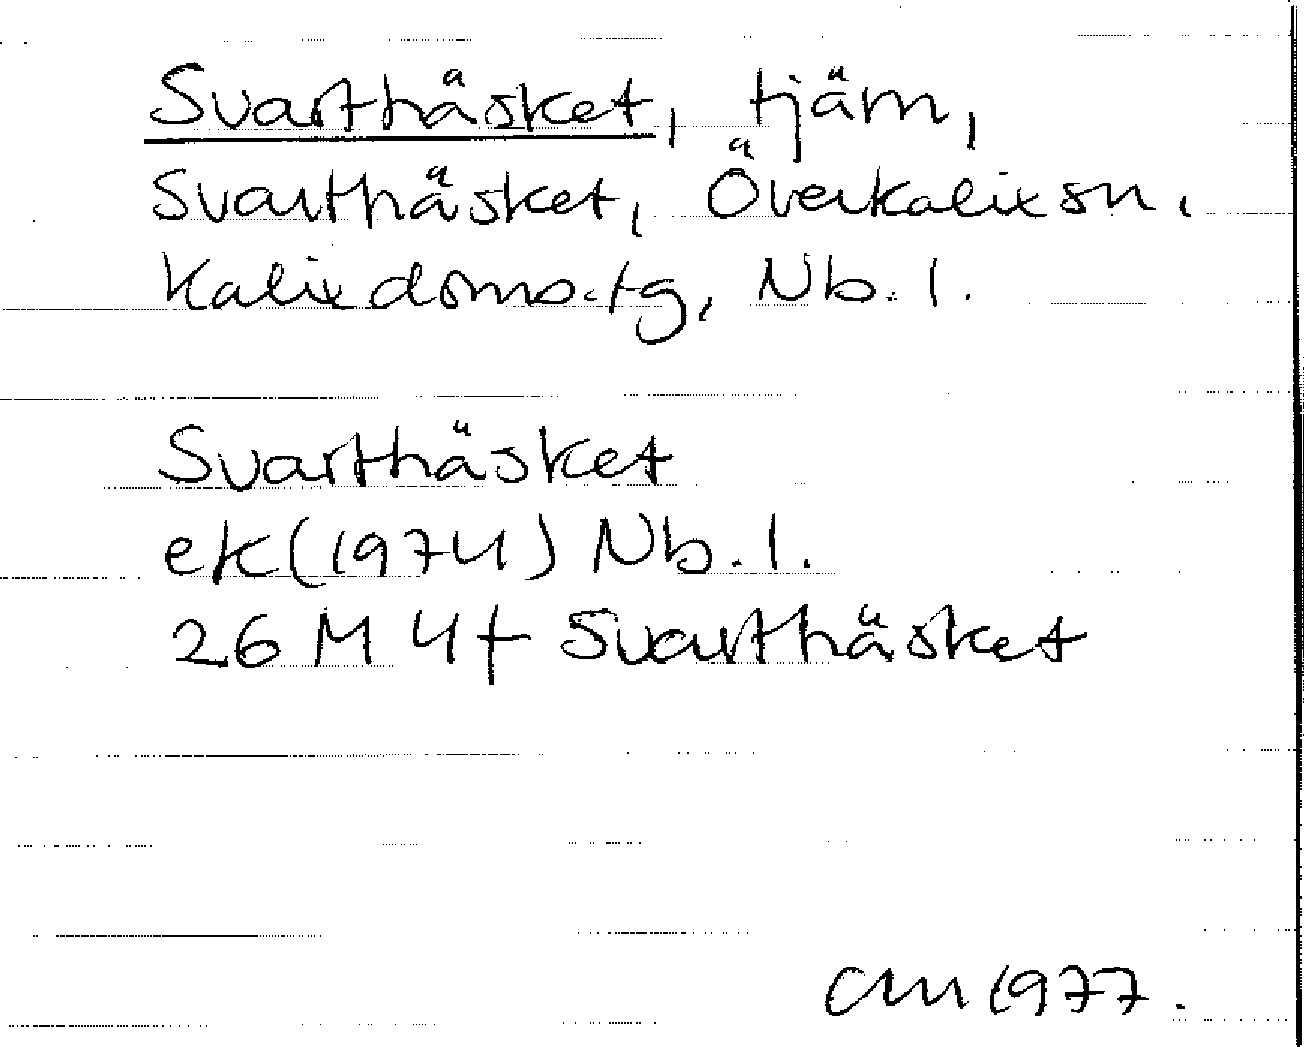 Svarthäsket, tjärn,
Svarthäsket, Överkalix sn,
Kalix doms.tg, Nb. l.
Svarthäsket
ek (1974) Nb. l.
26 M 4 f Svarthäsket
CM 1977.